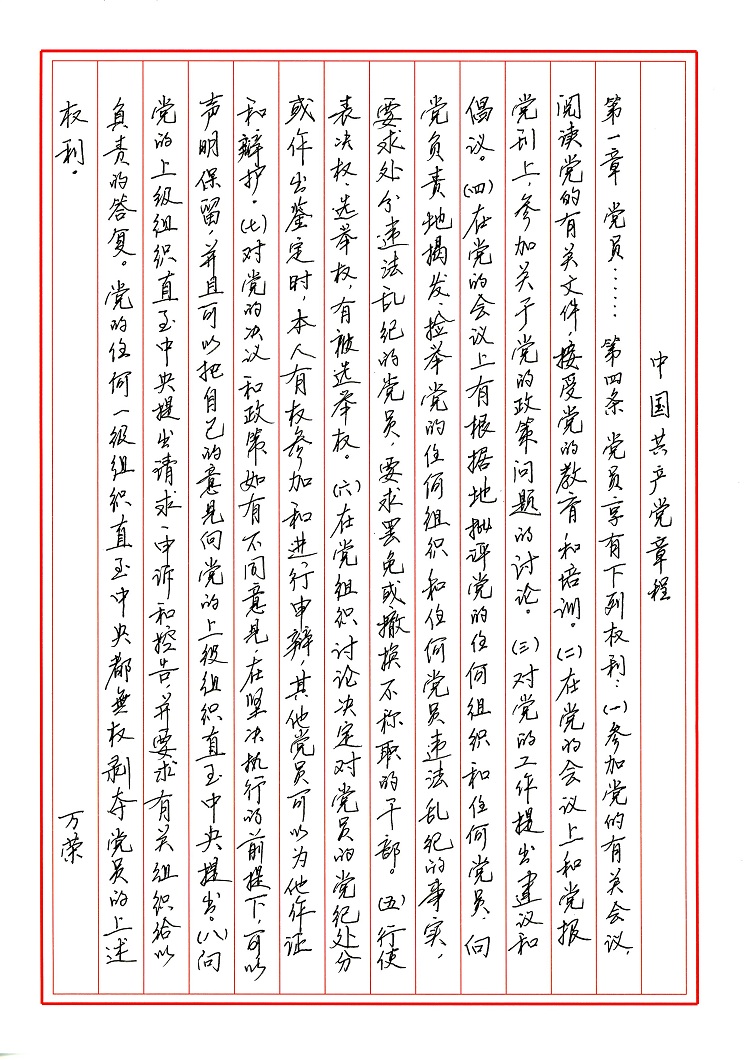 中国共产党章程
第一章 党员…… 第四条 党员享有下列权利：(一)参加党的有关会议，
阅读党的有关文件，接受党的教育和培训。(二)在党的会议上和党报
党刊上，参加关于党的政策问题的讨论。(三)对党的工作提出建议和
倡议。(四)在党的会议上有根据地批评党的任何组织和任何党员，向
党负责地揭发、捡举党的任何组织和任何党员违法乱纪的事实，
要求处分违法乱纪的党员，要求罢免或撤换不称职的干部。(五)行使
表决权、选举权，有被选举权。(六)在党组织讨论决定对党员的党纪处分
或作出鉴定时，本人有权参加和进行申辩，其他党员可以为他作证
和辩护。(七)对党的决议和政策如有不同意见，在坚决执行的前提下，可以
声明保留，并且可以把自己的意见向党的上级组织直至中央提出。(八)向
党的上级组织直至中央提出请求、申诉和控告，并要求有关组织给以
负责的答复。党的任何一级组织直至中央都無权剥夺党员的上述
权利。 万荣